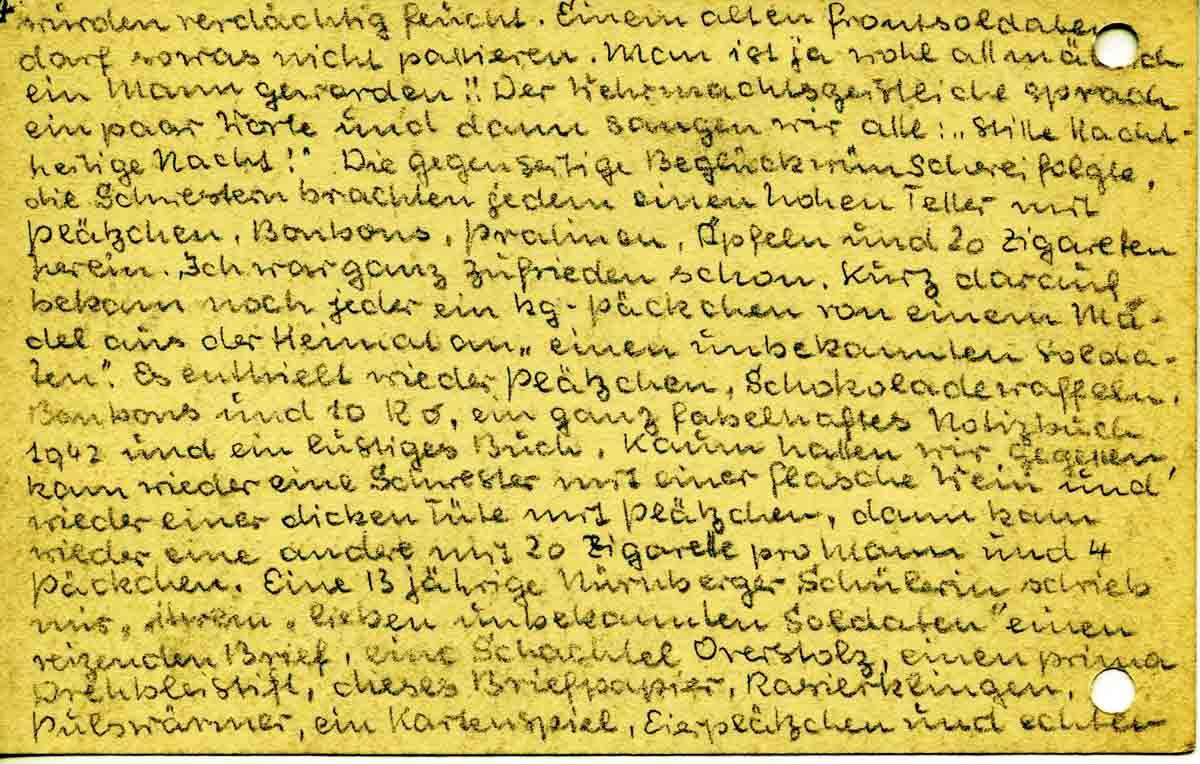 würden verdächtig feucht. Einem alten Frontsoldaten
darf sowas nicht passieren. Man ist ja wohl allmählich
ein Mann geworden!! Der Wehrmachtsgeistliche sprach
ein paar Worte und dann sangen wir alle: „Stille Nacht-
heilige Nacht!" Die gegenseitige Beglückwünscherei folgte,
die Schwestern brachten jedem einen hohen Teller mit
Plätzchen, Bonbons, Pralinen, Äpfeln und 20 Zigareten
herein. Ich war ganz zufrieden schon. Kurz darauf
bekam noch jeder ein kg-Päckchen von einem Mä-
del aus der Heimat an „einen unbekannten Solda-
ten". Es enthielt wieder Plätzchen, Schokoladewaffeln,
Bonbons und 10 R6, ein ganz fabelhaftes Notizbuch
1942 und ein lustiges Buch. Kaum hatten wir gegessen,
kam wieder eine Schwester mit einer Flasche Wein und
wieder einer dicken Tüte mit Plätzchen, dann kam
wieder eine andere mit 20 Zigarette pro Mann und 4
Päckchen. Eine 13 jährige Nürnberger Schülerin schrieb
mir, ihrem „lieben unbekannten Soldaten" einen
reizenden Brief, eine Schachtel Overstolz, einen prima
Drehbleistift, dieses Briefpapier, Rasierklingen,
Pulswärmer, ein Kartenspiel, Eierplätzchen und echten